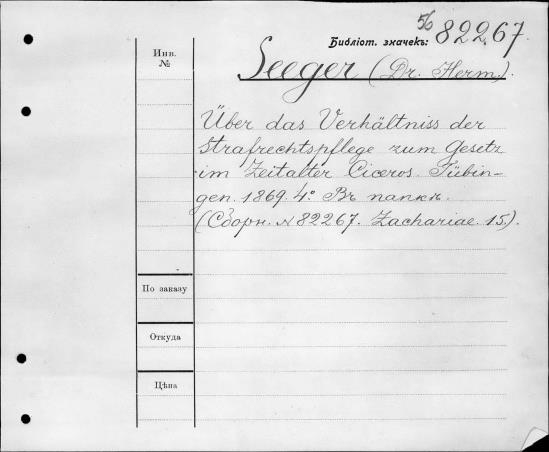 5/6
Библіот. значекъ: 82267.
Инв.
№
Seeger (Dr. Herm.).
Über das Verhältniss der
Strafrechtspflege zum Gesetz
im Zeitalter Ciceros. Tübin-
gen. 1869. 4°. Въ папкѣ.
(Сборн. № 82267. Zachariae. 15.).
По заказу
Откуда
Цѣна